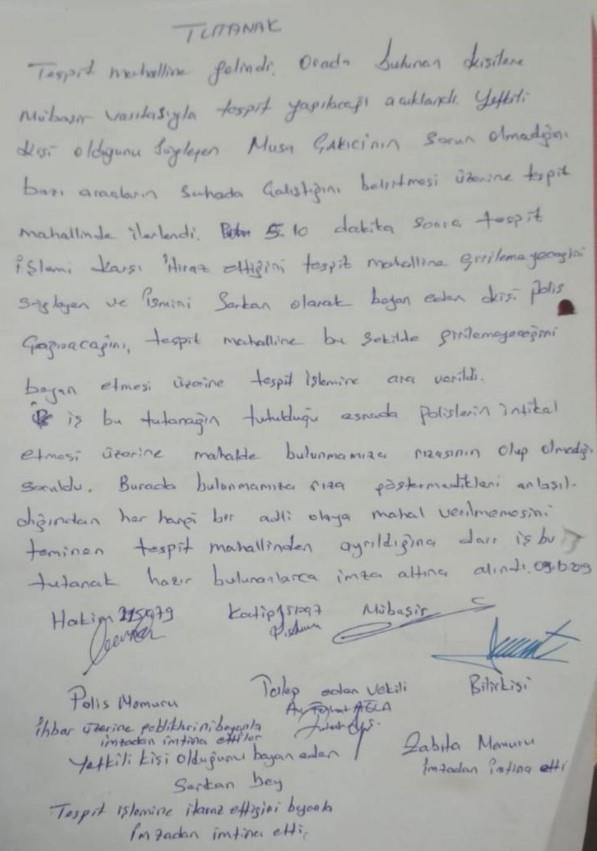 TUTANAK
Tespit mahalline gelindi. Orada bulunan kişilere
Mübaşir vasıtasıyla tespit yapılacağı açıklandı. Yetkili
kişi olduğunu söyleyen Musa Çakıcı'nın sorun olmadığını
bazı araçların sahada çalıştığını belirtmesi üzerine tespit
mahallinde ilerlendi. 5-10 dakika sonra tespit
işlemi karşı itiraz ettiğini tespit mahalline girilemeyeceğini
söyleyen ve ismini Serkan olarak beyan eden kişi polis
çağıracağını, tespit mahalline bu şekilde girilemeyeceğini
beyan etmesi üzerine tespit işlemine ara verildi.
iş bu tutanağın tutulduğu esnada polislerin intikal
etmesi üzerine mahalde bulunmamıza rızasının olup olmadığı
soruldu. Burada bulunmamıza rıza göstermedikleri anlaşıl-
dığından her hangi bir adli olaya mahal verilmemesini
teminen tespit mahallinden ayrıldığına dair iş bu
tutanak hazır bulunanlarca imza altına alındı.
Hakim Katip Mübaşir
Polis Memuru Talep eden vekili Bilirkişi
ihbar üzerine geldiklerini beyanla
imzadan imtina ettiler
Yetkili kişi olduğunu beyan eden Zabıta Memuru
Serkan Bey imzadan imtina etti
Tespit işlemine itiraz ettiğini beyanla
imzadan imtina etti.